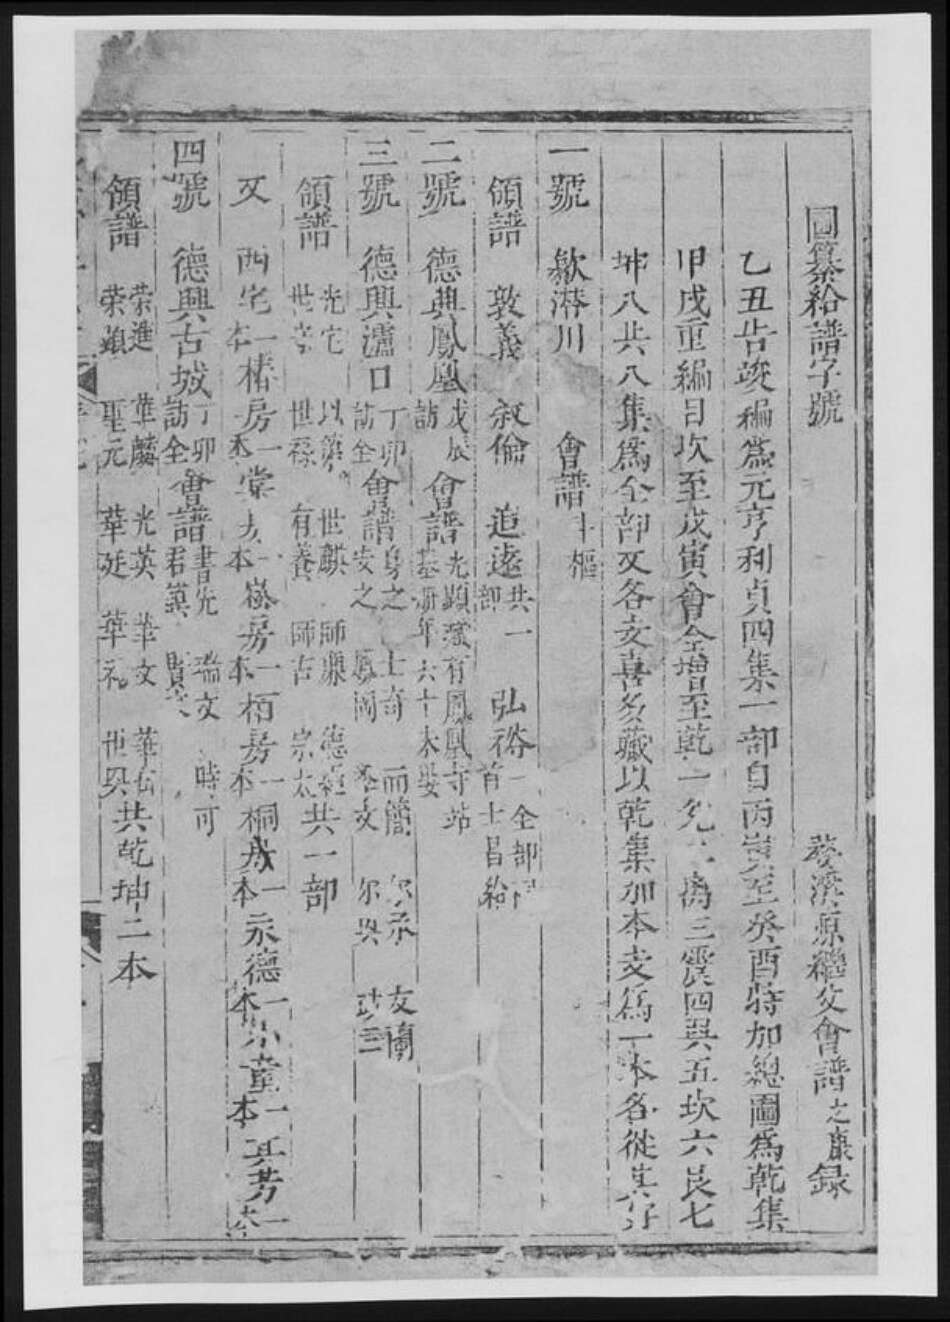 回纂給譜字號
婺濟源繼父會譜之康錄
乙丑告竣編爲元亨利貞四集一部自丙寅至癸酉特加總圖爲乾集
甲戌重編目坎至戊寅會全增至乾一兌二离三震四巽五坎六艮七
坤八共八集爲全部又各支喜多藏以乾集加本支爲一本各從其好
一號 歙溎川 會譜斗樞
領譜 敦義 叙倫 追遠共一部 弘裕一全部 首士昌給
二號 德興鳳凰戊辰訪會譜光顯殘有鳳凰寺站 基册年六十未娶
三號 德興瀘口丁卯訪全會譜身之 士奇 而簡 尔承 友蘭
安之 鳳岡 文 尔興
領譜光宅 以 世麒 師濂 德
世 世祿 有養 師吉 宗太共一部
又 西宅一本椿房一本棠 一本 房一本栢房一本桐房一本永德一本 童一本其芳一本
四號 德興古城丁卯訪全會譜書先 瑞文 時可
君 賢
領譜榮進 華麟 光英 華文 華
榮顯 聖元 華廷 華礼 世具共乾坤二本